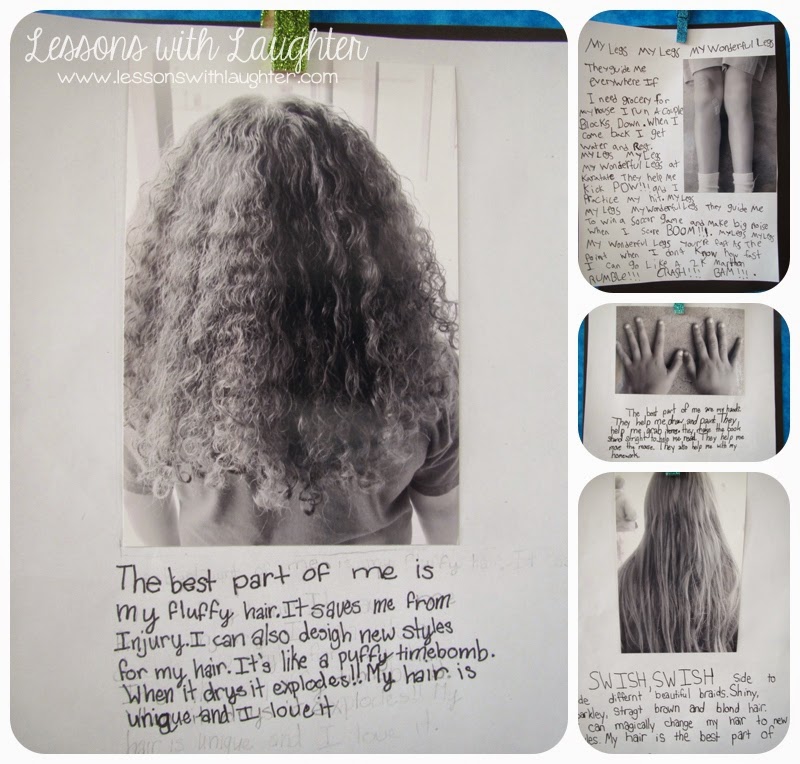 Lessons with Laughter
www.lessonswithlaughter.com
The best part of me is
my fluffy hair. It saves me from
Injury. I can also desigh new styles
for my hair. It's like a puffy timebomb.
When it drys it explodes!! My hair is
unique and I love it
My Legs My Legs My Wonderful Legs
They guide me
everywhere If
I need grocery for
my house I run a couple
Blocks Down. When I
come back I get
water and Rest.
My Legs My Leg
My Wonderful Legs at
They help me
Kick POW!!! and I
Practice my hit. My Legs
My Legs My Wonderful Legs They guide Me
To win a Soccer game and make big noise
when I score BOOM!!!. My Legs My Legs
My Wonderful Legs You're fast to The
Point when I don't know how fast
I can go Like a 2K
RUMBLE!!! CRASH!!! BAM!!!.
The best part of me are my hands.
They help me draw and paint. They
help me grab items. they make the book
stand stright to help me read. They help me
move the mouse. They also help me with my
homework.
SWISH, SWISH side to
de differnt beautiful braids. Shiny,
arkley, stragt brown and blond hair.
can magically change my hair to new
les. My hair is the best part of